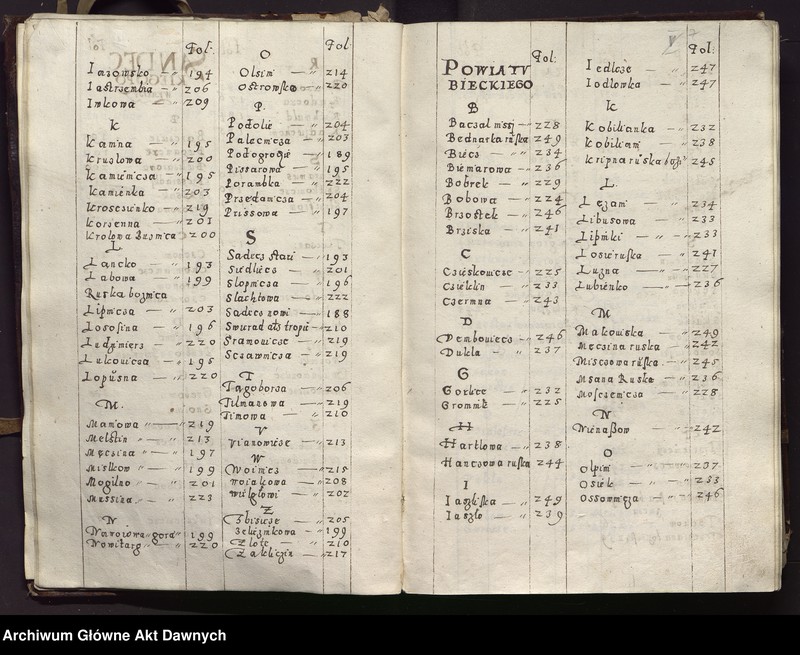 Fol:
Iazowsko — " 194
Iastrzembia " 206
Iwkowa — " 209
K
Kamna — " 195
Kruzlowa — " 200
Kamienicza — " 195
Kamienka — " 203
Krosczienko " 219
Korzenna — " 201
200
L
Lancko — " 193
Labowa — " 199
Ruska
Lipnicza — " 203
Lososina — " 196
Ludzmierz — " 220
Lukowicza — " 195
Lopusna — " 220
M.
Maniowa " — " 219
Melstin " — " 213
Męcsina " — " 197
Mistkow " — " 199
Mogilno " — " 201
Mussina " — " 223
N
Nawoiowa gora " 199
Nowitarg " — " 220
O
Fol
Olsini — " 214
Ostrowsko — " 220
P.
Podolie — " 204
Palecznicza — " 203
Podogrodzie — " 189
Pissarowa — " 195
Porambka — " 222
Przedanicza — " 204
Prissowa — " 197
S
Sadecz stari — " 193
Siedliecz — " 201
Slopnicza — " 196
Slachtowa — " 222
Sadecz nowi — " 188
Swirad als tropie — " 210
Sramowicze — " 219
Sczawnicza — " 219
T
Tagoborza — " 206
Tilmanowa — " 219
Timowa — " 210
V
Vianowicze — " 213
W
Woinicz — " 215
Woiakowa — " 208
Wielgłowi — " 202
Z
Zbisicze — " 205
Zeliznikowa — " 199
Zlote — " 210
Zakliczin — " 217
Fol:
POWIATU
BIECKIEGO
B
228
Bednarka ruska 249
Biecz — " 234
Biesnarowa — " 236
Bobrek — " 229
Bobowa — " 224
Brzostek — " 246
Brziska — " 241
C
Czieskowicze — " 225
Czieklin — " 233
Czermna — " 243
D
Dembowiecz — " 246
Dukla — " 237
G
Gorlice — " 232
Gromnik — " 225
H
Harklowa — " 238
Hanczowa ruska 244
I
Iasliska — " 249
Iaszlo — " 239
Fol.
Iedlcze — " 247
Iodlowka — " 247
K
Kobilianka — " 232
Kobiliani — " 238
Kripna ruska 245
L.
Lezani — " 234
Libusowa — " 233
Lipinki — " — " 233
Losie ruska — " 241
Luzna — " 227
Lubienko — " 236
M
Makowiska — " 249
Męcsina ruska — " 242
Misczowa ruska. — " 245
Msana Ruska — " 236
Mosczenicza — " 228
N
Nienaszow — " 242
O
Olpini — " 237
Osiek — " — " 233
Ossownicza — " — " 246
Archiwum Główne Akt Dawnych